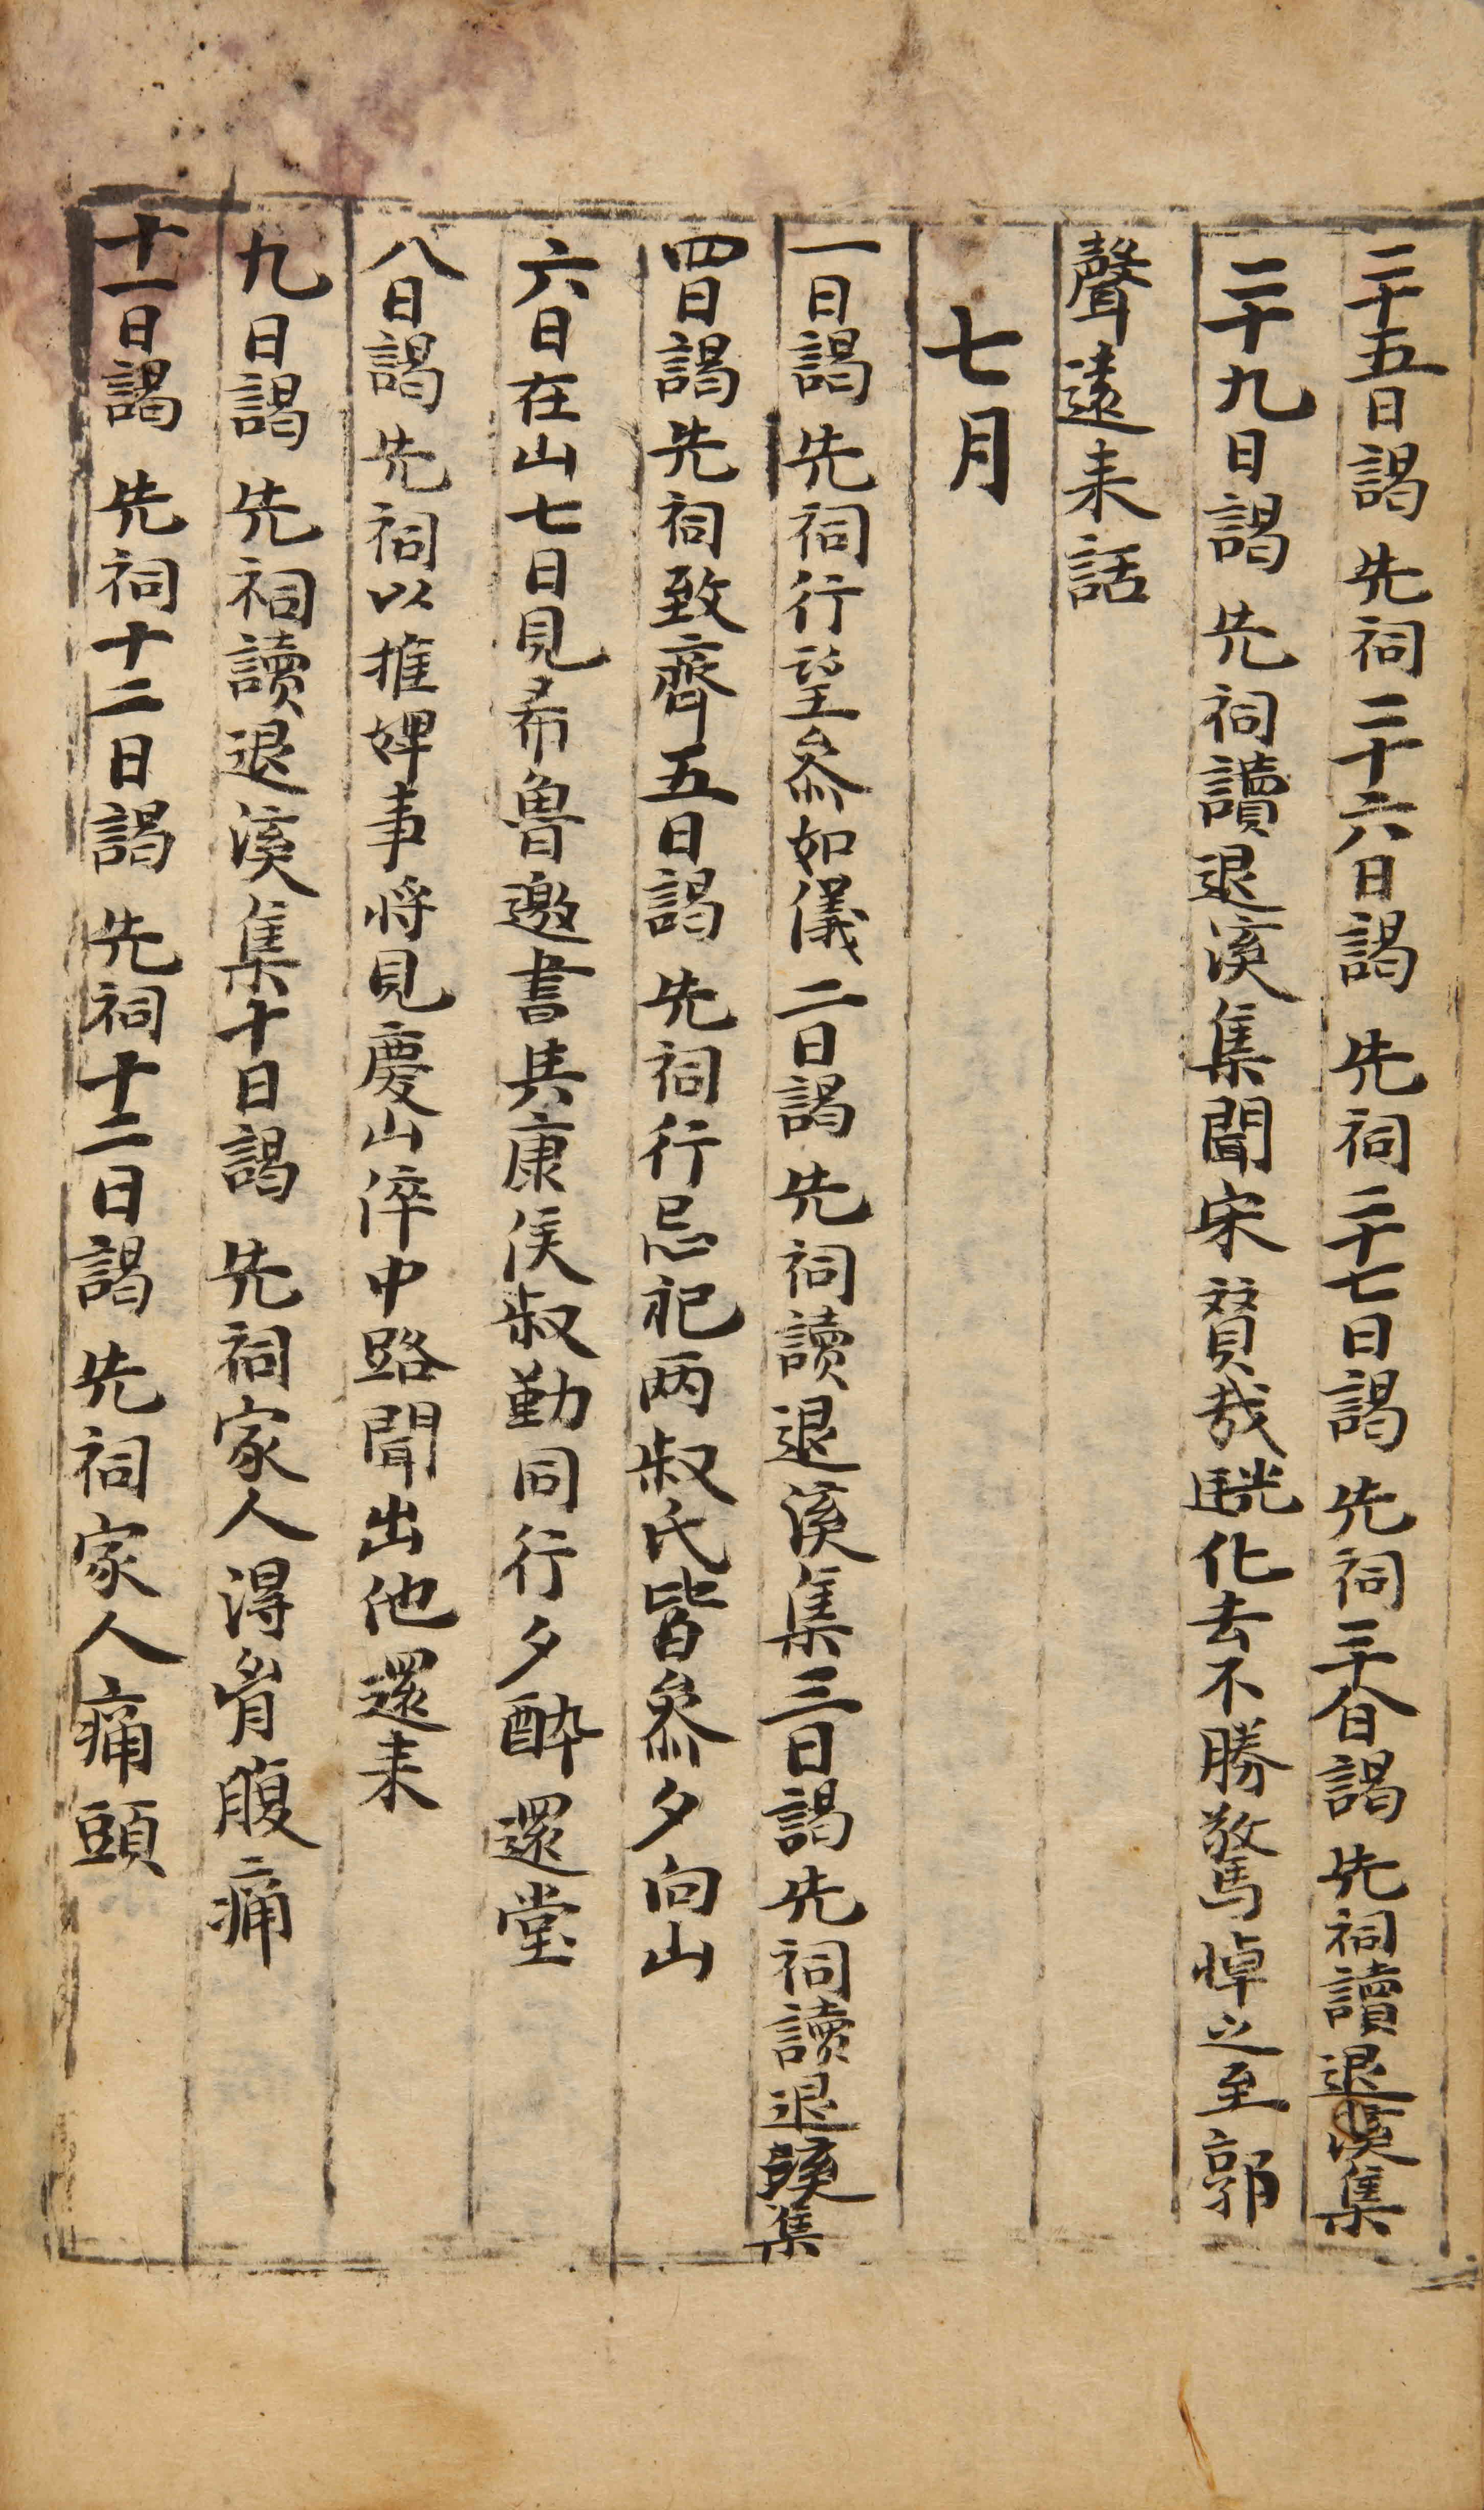 二十五日謁 先祠二十六日謁 先祠二十七日謁 先祠二十八日謁 先祠讀退溪集
二十九日謁 先祠讀退溪集聞宋賛哉駫化去不勝驚悼之至郭
聲遠来話
七月
一日謁 先祠行望叅如儀二日謁 先祠讀退溪集三日謁先祠讀退溪集
四日謁先祠致齊五日謁 先祠行忌祀两叔氏皆叅夕向山
六日在山七日見希魯邀書共康侯叔勤同行夕酔還堂
八日謁 先祠以推婢事将見慶山倅中路聞出他還来
九日謁 先祠讀退溪集十日謁 先祠家人得胷腹痛
十一日謁 先祠十二日謁 先祠十三日謁 先祠家人痛頭